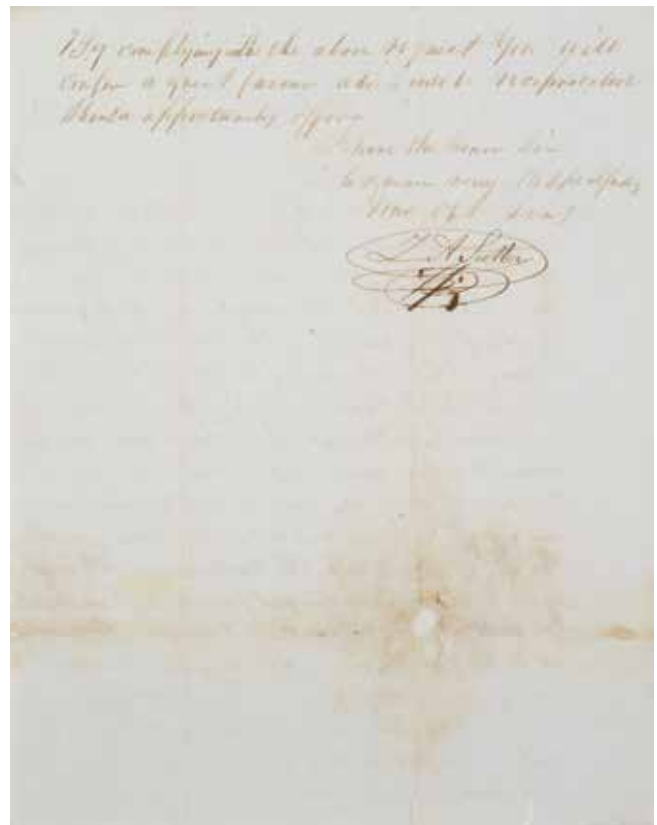 By complying with the above request you will
confer a great favor which I will reciprocate
should opportunity offer
I have the honor Sir
to remain very respectfully
J A Sutter